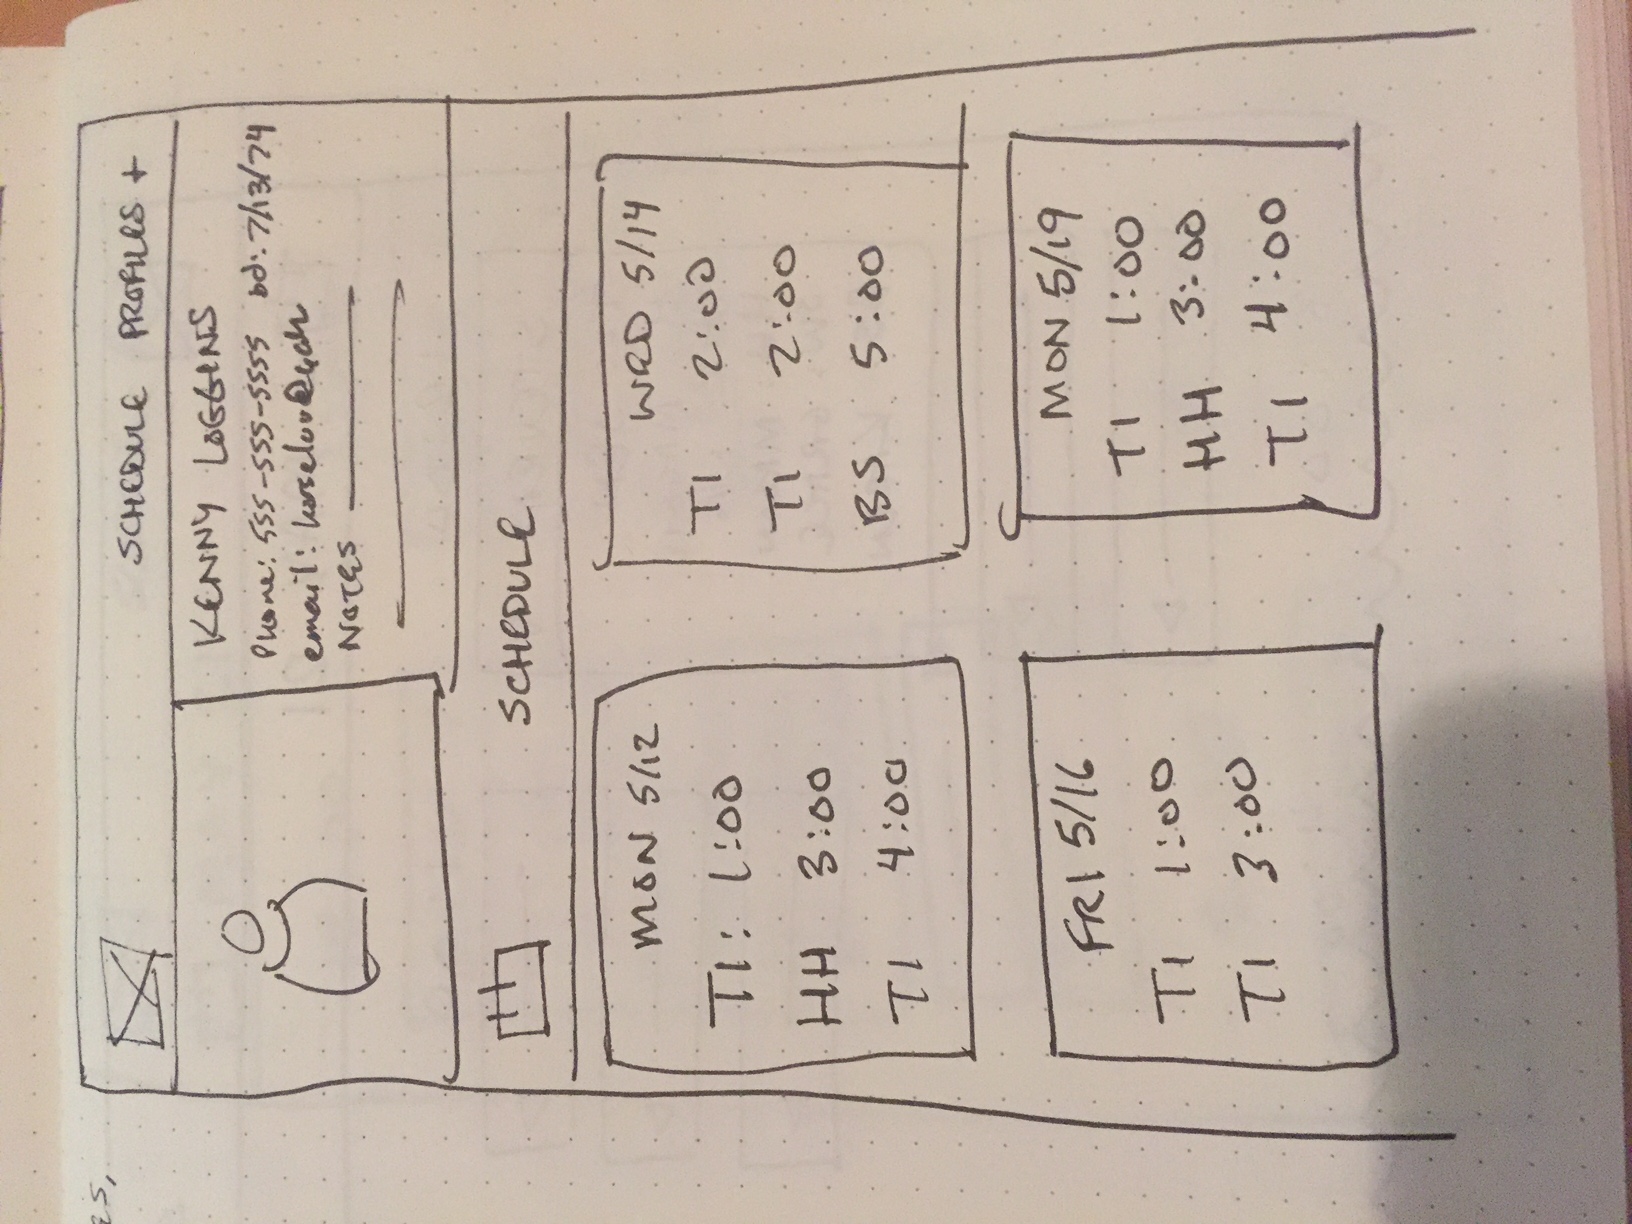 SCHEDULE PROFILES +
KENNY LOGGINS
Phone: 555-555-5555 bd: 7/13/74
email:
NOTES
SCHEDULE
MON 5/12
TI: 1:00
HH 3:00
TI 4:00
WED 5/14
TI 2:00
TI 2:00
BS 5:00
FRI 5/16
TI 1:00
TI 3:00
MON 5/19
TI 1:00
HH 3:00
TI 4:00